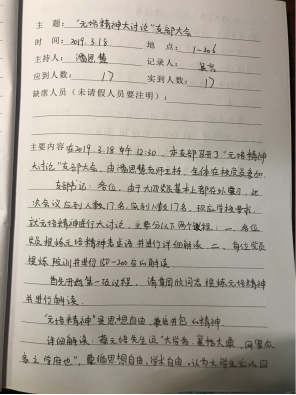 主 题: "元培精神大讨论"支部大会
时 间: 2019.3.18 地 点: 1-206
主持人: 潘思慧 记录人:
应到人数: 17 实到人数: 17
缺席人员(未请假人员要注明):
主要内容 在2019.3.18 中午12:30, 本支部召开了"元培精神
大讨论"支部大会, 由潘思慧老师主持, 全体在校党员参加.
支部书记: 各位, 由于大四党员基本上都在外实习, 此
次会议应到人数17人, 实到人数17人, 现应学校要求,
就元培精神进行大讨论, 主要分以下两个议程: 一、各位
党员提炼元培精神表述语并进行详细解读. 二、每位党员
提炼院训并进行150-200字的解读.
首先开始第一项议程, 请 同志提炼元培精神
并进行解读.
"元培精神"是思想自由, 兼容并包的精神.
详细解读: 蔡元培先生说"大学者, 囊括大典, 网罗众
家之学府也", 要循思想自由, 学术自由. 认为大学生应以